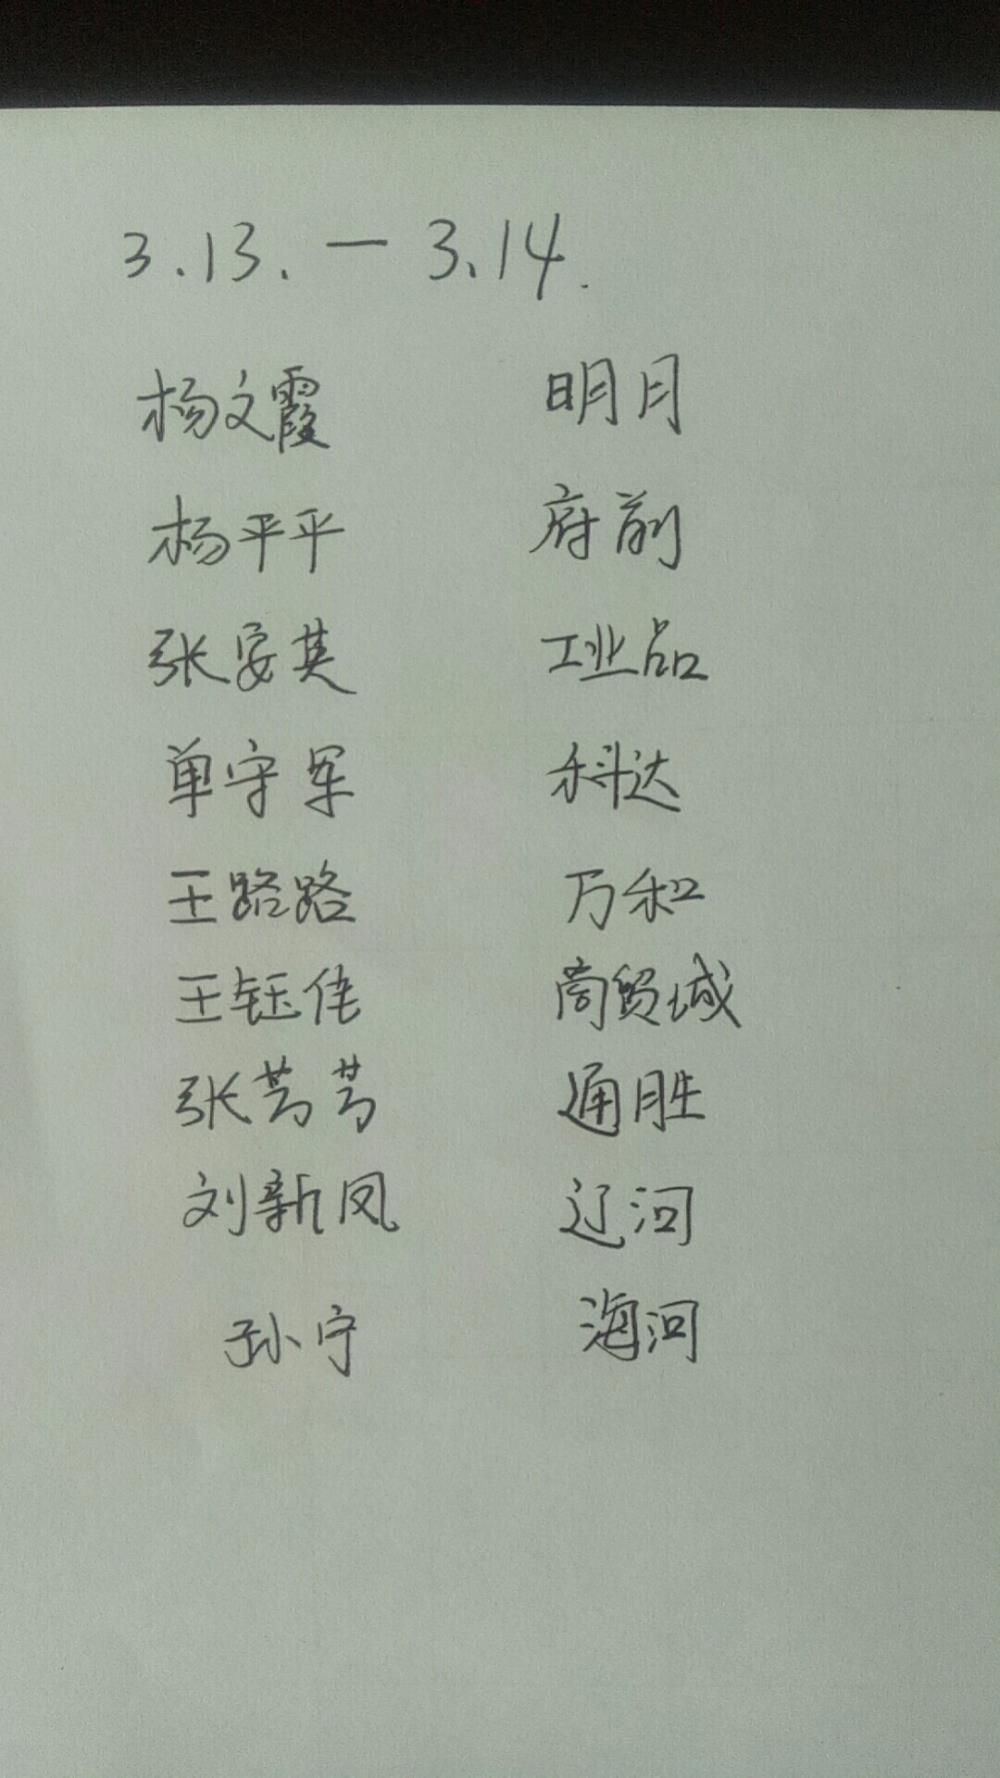 3.13.—3.14.
杨文霞 明月
杨平平 府前
张安英 工业品
单守军 科达
王路路 万和
王钰佳 商贸城
张芳芳 通胜
刘新凤 辽河
孙宁 海河